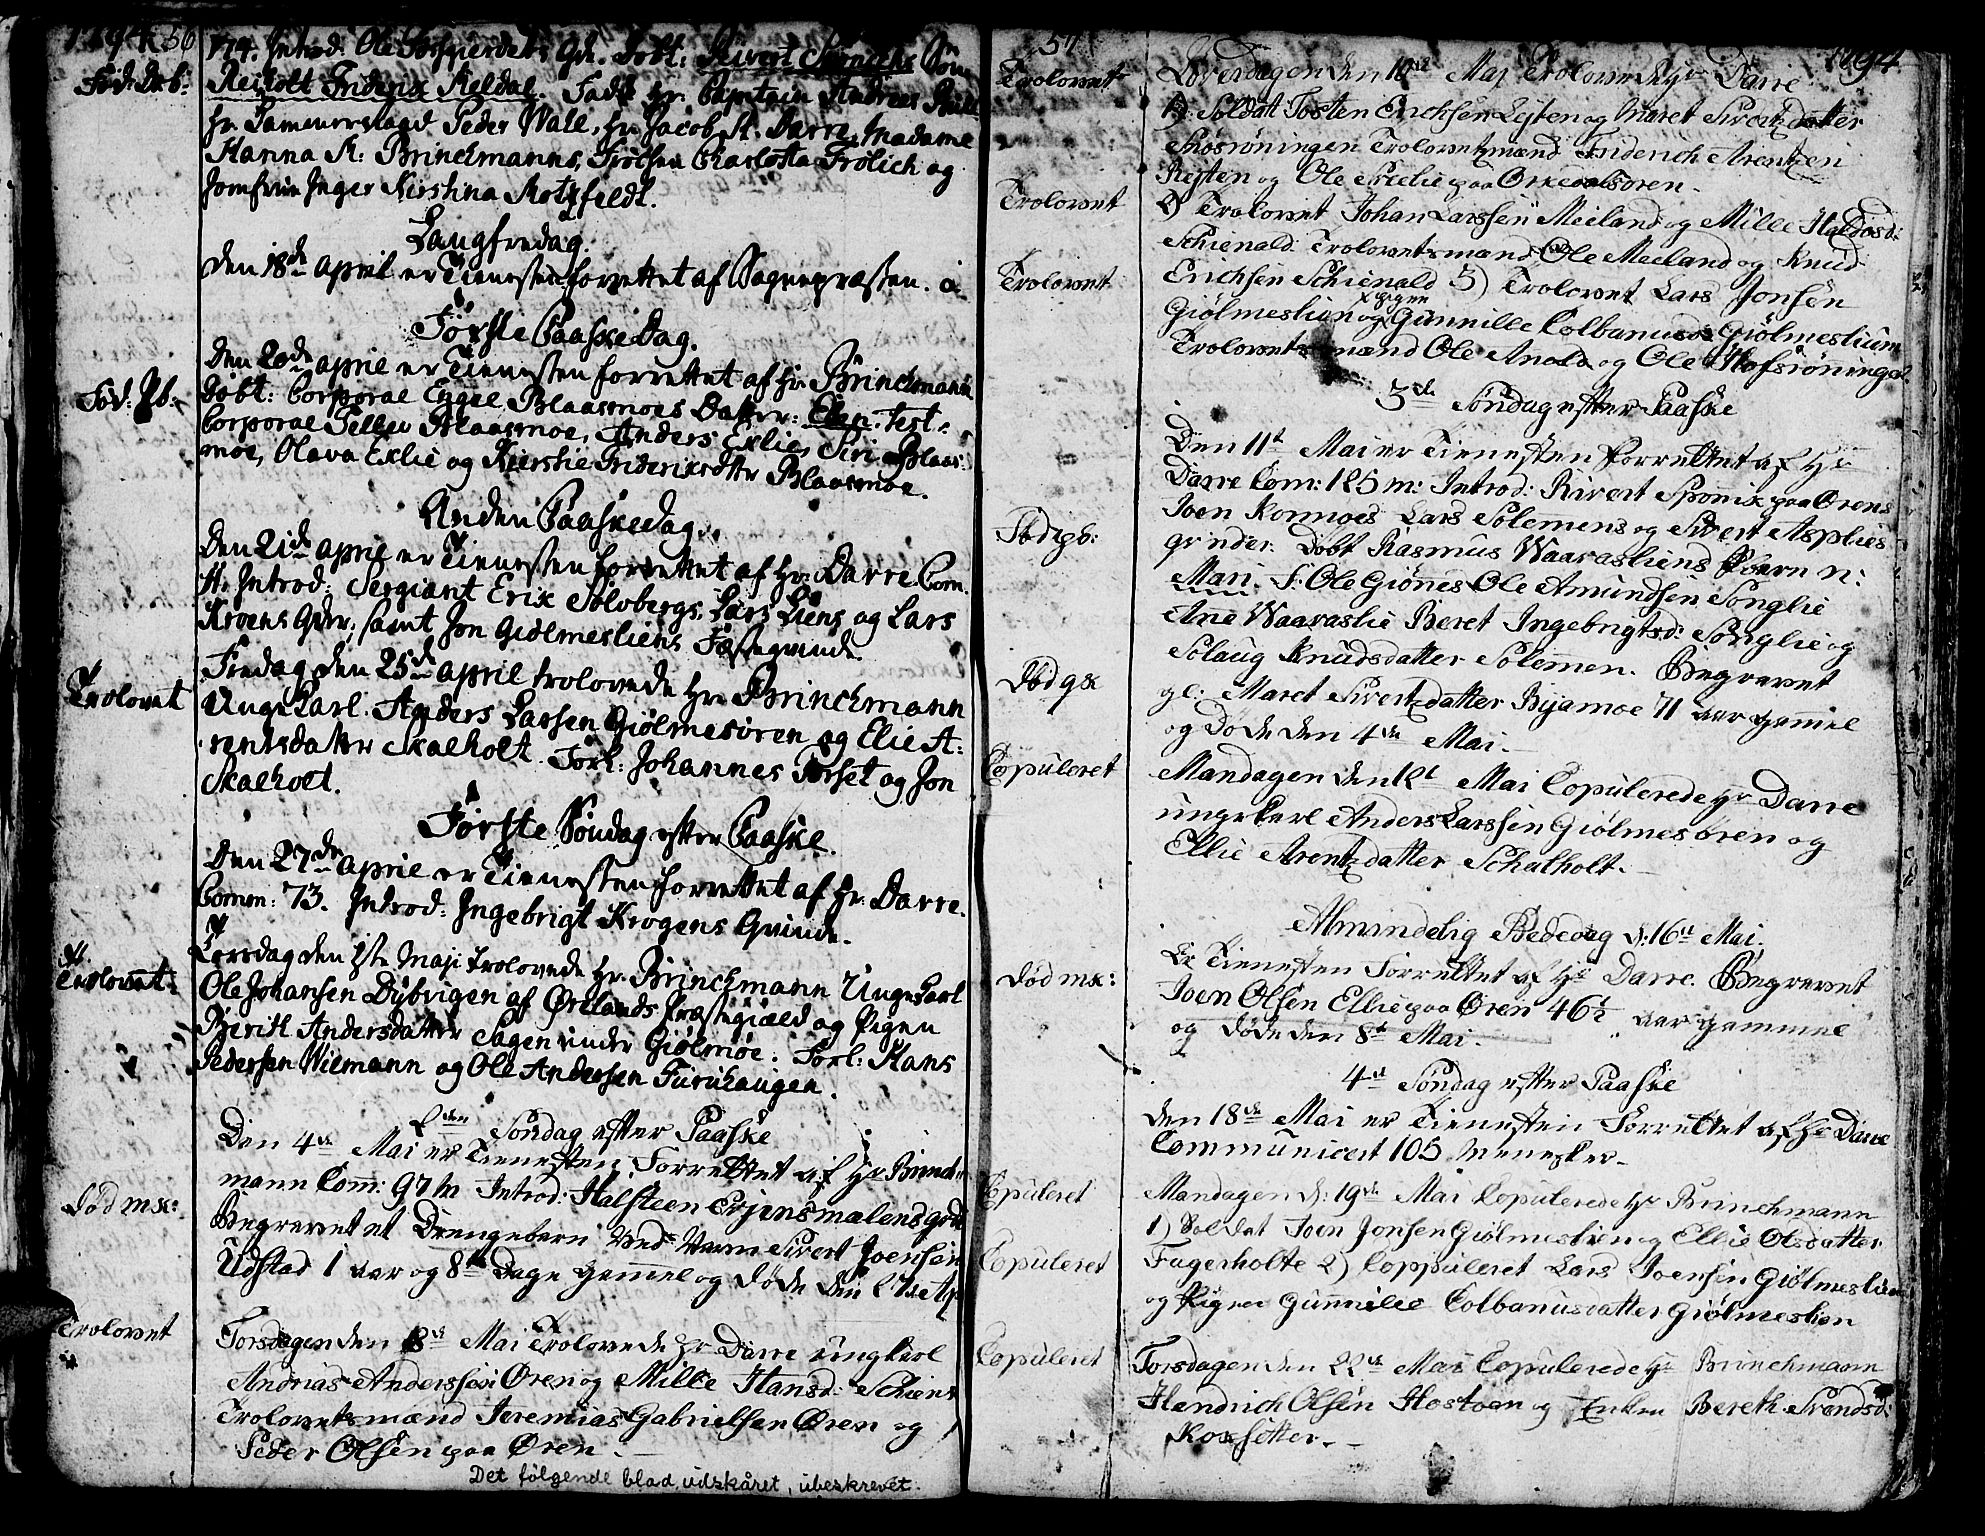 1794. 56
Fød: Dr.b:
174. Introd: Ole Torsgierdets Qd. Døbt: Sivert Søn
Reitolt Friderik Keldal. Fadd: Hr. Capitain Andreas
Hr. Peder Wall, Hr. Jacob H. Darre, Madame
Hanna M: Brinchmanns, Frøken Charlotta Frølich og
Jomfrue Inger Kirstina Motzfeldt.
Langfredag.
Den 18de April er Tienesten forrettet af Sognepræsten.
Første Paaske Dag.
Den 20de April er Tienesten forrettet af Hr. Brinchmann
Fød: Pb:
Døbt: Corporal Engel Blaasmoes Datter: Elen. Test:
Corporal Tellev Blaasmoe, Anders Exlie, Siri Blaas-
moe, Olava Exlie og Kierstie Frideriksdttr Blaasmoe.
Anden Paaskedag.
Den 21de April er Tienesten forrettet af Hr: Darre. Com.
11. Introd: Sergiant Erik Solvbergs, Lars Liens og Lars
Kroens Qdr; samt Jon Giølmesliens Fæstequinde.
Trolovet
Fredag den 25de April trolovede Hr. Brinchmann
Unge Karl Anders Larsen Giølmesøren og Elie A-
rentsdatter Skalholt. Forl: Johannes Torset og Jon
Skalholt.
Første Søndag efter Paaske.
Den 27de April er Tienesten forrettet af Hr. Darre.
Comm: 73. Introd: Ingebrigt Krogens Quinde.
Trolovet:
Torsdag den 1ste Maji trolovede Hr. Brinchmann Unge Karl
Ole Johansen Dybvigen af Ørelands Præstegiæld og Pigen
Berit Andersdatter Hagen under Giølmøe. Forl: Hans
Pedersen Wiemann og Ole Andersen Furuhaugen.
2den Søndag efter Paaske
Den 4de Mai er Tienesten Forrettet af Hr Brinch-
mann Com: 97 m Introd: Halsteen
Død mk:
Begravet et Drengebarn ved Navn Sivert Joensen
Udstad 1 aar og 8te Dage gamel og døde den
Trolovet
Torsdagen den 8de Mai Trolovede Hr Darre ungkarl
Andrias Anderssen Øren og Mille Hansd: Schiens
Trolovetsmænd Jeremias Gabrielsen Øren og
Peder Olsen paa Øren.
Det følgende blad, udskåret, ubeskrevet.
57
1794
Trolovet
Løverdagen den 10de Mai Trolovede Hr Darre
1) Soldat Tosten Erichsen Lejten og Maret Sivertzdatter
Trolovetzmænd Friderich Arentzen
Rejten og Ole paa Orkedalsøren.
Trolovet
2) Trolovet Johan Larssen Meiland og Mille Haldosd:
Schienald. Trolovetsmænd Ole Meeland og Knud
Trolovet
Erichsen Schienald 3) Trolovet Lars Jonsen
Giølmeslien og Pigen Gunnille Colbanusd: Giølmeslium
Trolovetsmænd Ole og Ole
3de Søndag efter Paaske
Den 11te Mai er Tienesten forrettet af Hr
Darre Com: 125 m: Introd: Sivert paa Ørens
Joen Konmoes Lars Solemens og Sivert Asplies
Fød pb:
qvinder. Døbt Rasmus Waarasliens Pbarn n:
Mari. F: Ole Giønes Ole Amundsen Songlie
Ane Waaraslie Beret Ingebrigtsd: Songlie og
Solaug Knudsdatter Solemen. Begravet
Død qk
gl: Maret Sivertzdatter Bjamoe 71 aar gammel
og Døde den 4de Mai.
Copuleret
Mandagen den 12t Mai Copulerede Hr Darre
ungekarl Anders Larssen Giølmesøren og
Ellie Arentzdatter Schalholt.
Almindelig Bededag d: 16de Mai.
Er Tienesten Forrettet af Hr Darre. Begravet
Død mk:
Joen Olsen Ellie paa Øren 46½ aar gammel
og døde den 8de Mai.
4de Søndag efter Paaske
den 18de Mai er Tienesten Forrettet af Hr Darre
Communicert 105 Menesker.
Copuleret
Mandagen d: 19de Mai Copulerede Hr Brinchmann
1) Soldat Joen Jonsen Giølmeslien og Ellie Olsdatter
Copuleret
Fagerholte 2) Coppuleret Lars Joensen Giølmeslien
og Pigen Gunnilee Colbanusdatter Giølmeslien
Copuleret
Torsdagen den 22de Mai Copulerede Hr Brinchmann
Hendrich Olsen Hostoen og Enken Bereth Svendsd:
Koxsetter.